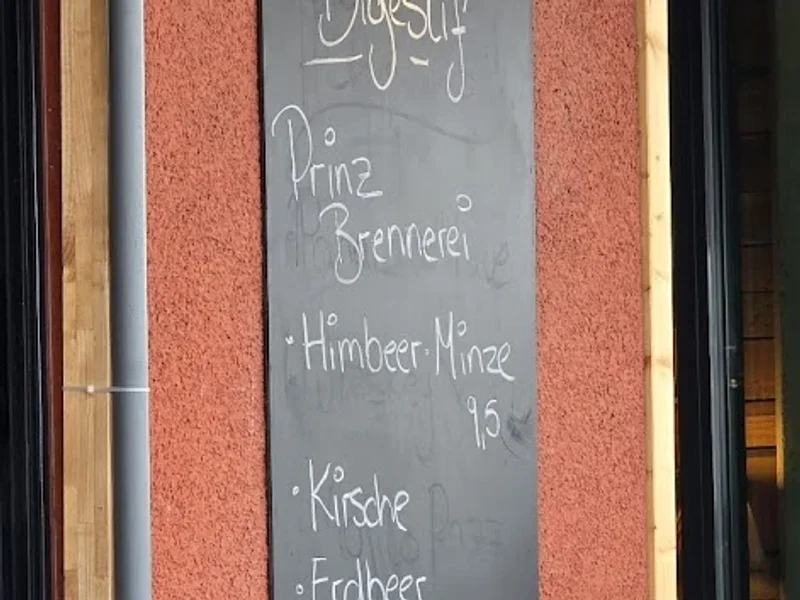 Digestif
Prinz
Brennerei
· Himbeer·Minze
9,5
· Kirsche
· Erdbeer